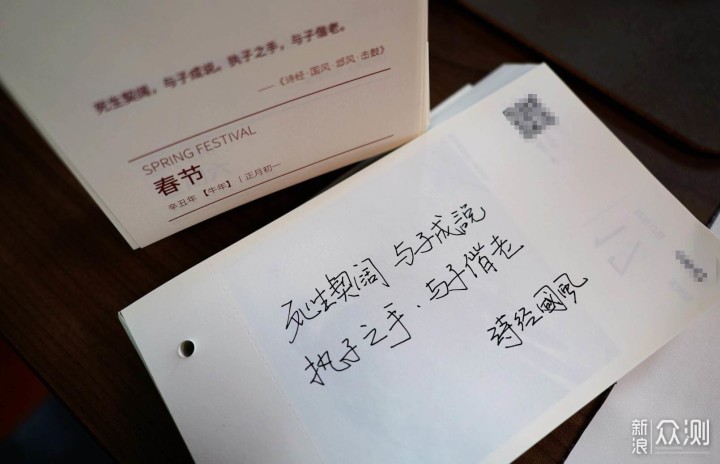 死生契阔，与子成説。执子之手，与子偕老。
——《诗经·国风·邶风·击鼓》
SPRING FESTIVAL
春节
辛丑年【牛年】｜正月初一
死生契阔 与子成説
执子之手．与子偕老
诗经國风
新浪众测